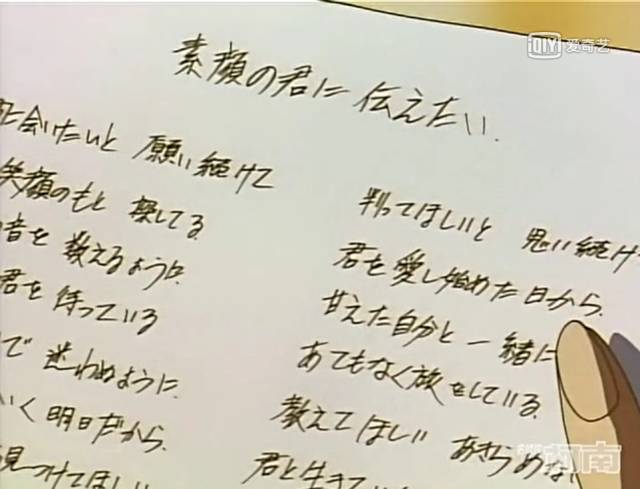 iQIYI 爱奇艺
素顔の君に伝えたい
に会いたいと 願い続けて
笑顔のもと 探してる
音を 数えるように
君を 待っている
で 迷わぬように
いく 明日だから
見つけてほしい
判ってほしいと 思い続け
君を愛し始めた日から
甘えた自分と 一緒に
あてもなく旅をしている
教えてほしい あきらめない
君と生きてい
柯南